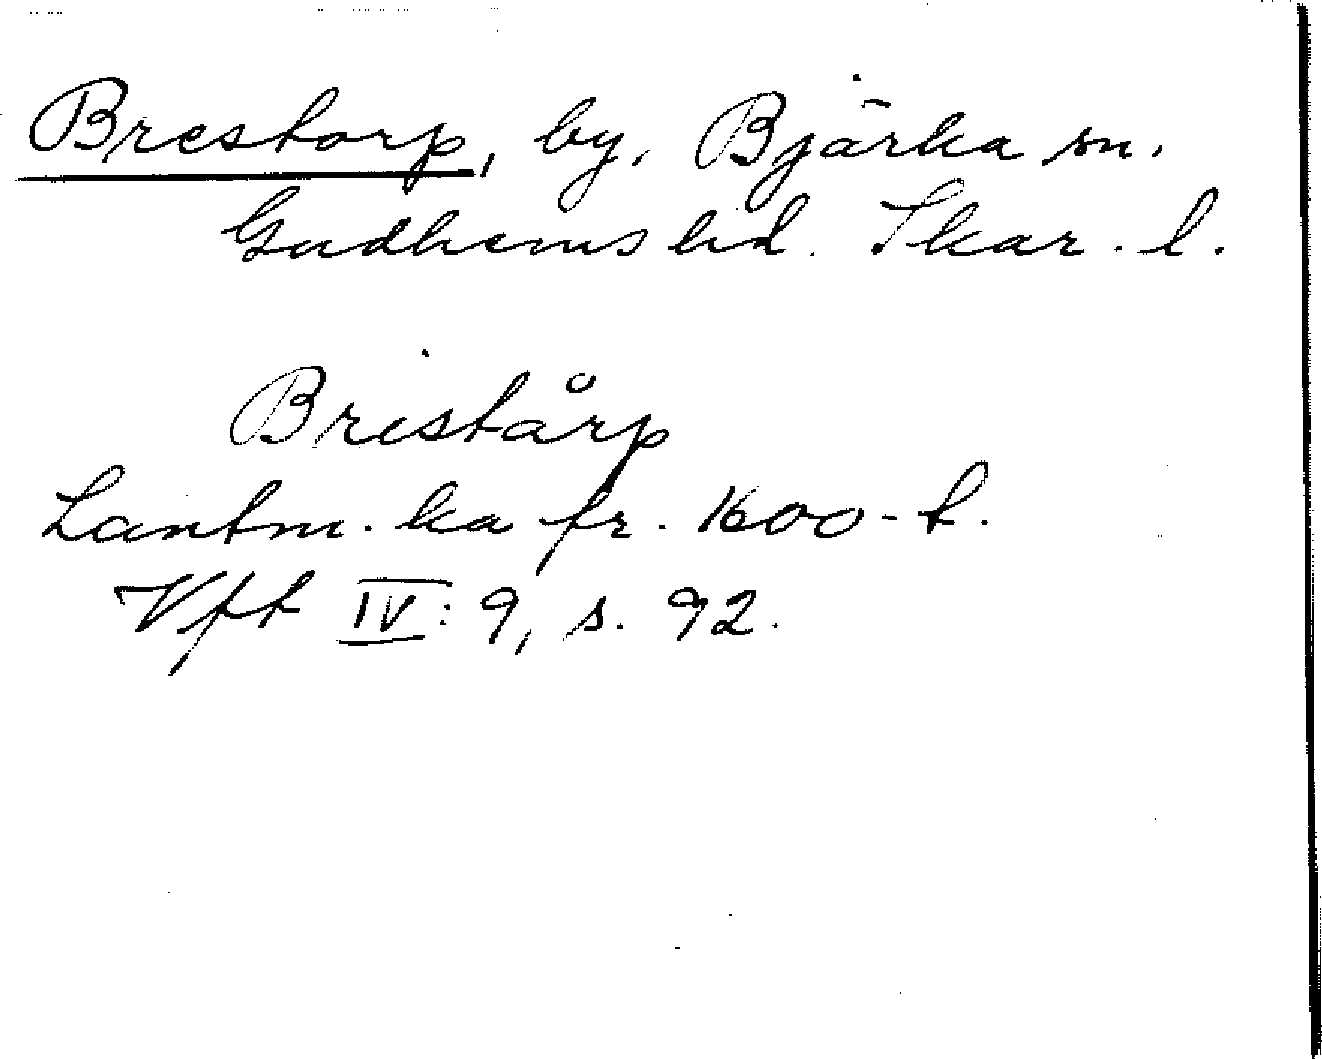 Brestorp, by, Bjärka sn.
Gudhems hd. Skar. l.
Brestårp
Lantm. ka fr. 1600-t.
Vft IV: 9, s. 92.